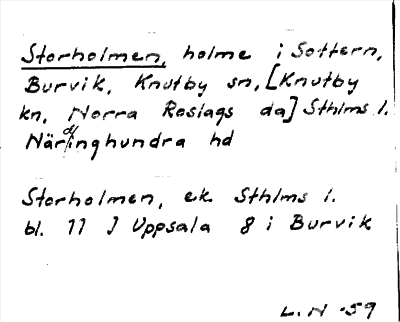 Storholmen, holme i Sottern,
Burvik, Knutby sn, [Knutby
kn, Norra Roslags da] Sthlms l.
Närdinghundra hd
Storholmen, ek. Sthlms l.
bl. 77 J Uppsala 8 i Burvik
L.N -59